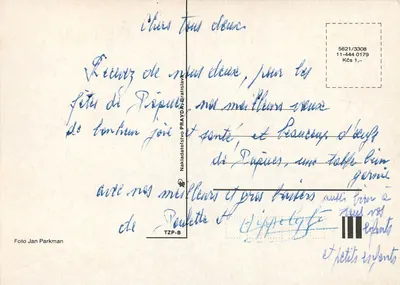 chers tous deux.
Recevez de nous deux, pour les
fêtes de Pâques, nos meilleurs vœux
de bonheur joie et santé, et beaucoup d'œufs
de Pâques, une table bien
garnie
avec nos meilleurs et gros baisers aussi bien à
de Paulette et Hippolyte tous vos
enfants
et petits enfants
5621/3308
11-444 0179
Kčs 1,-
Nakladateľstvo PRAVDA Bratislava
Foto Jan Parkman
TZP-B